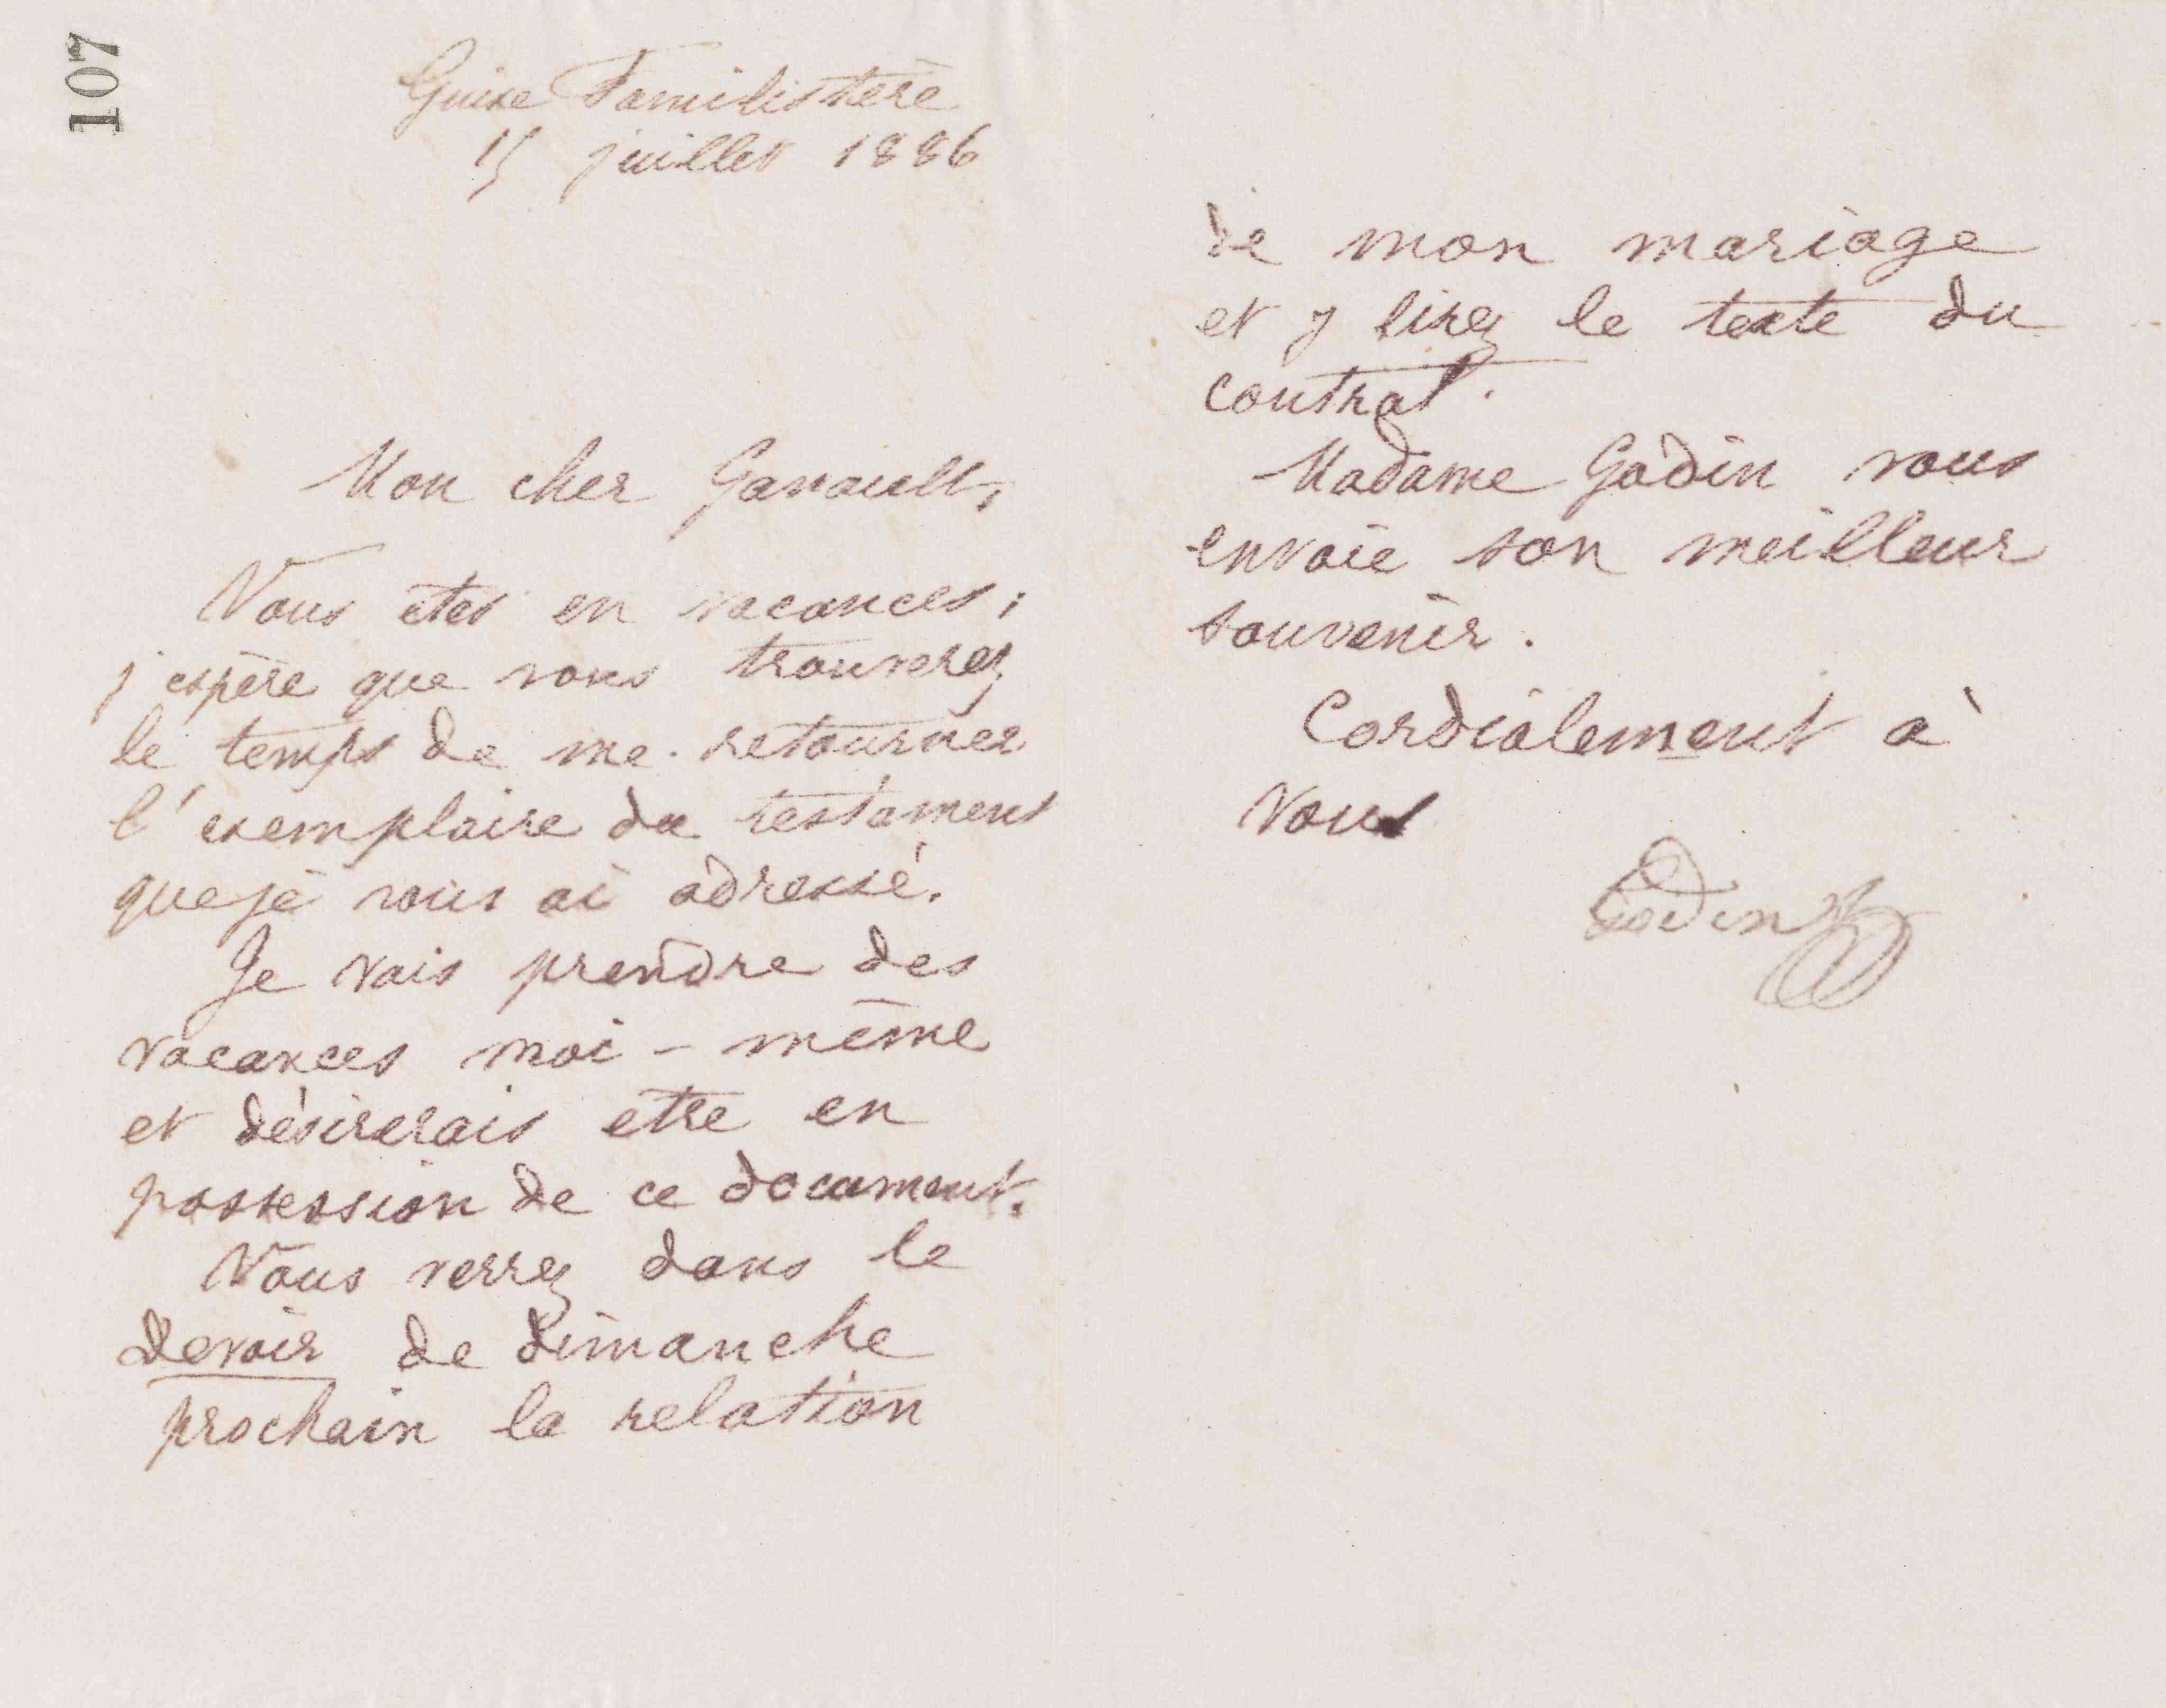 107
Guise Familistère
15 juillet 1886
Mon cher Ganault,
Vous êtes en vacances ;
j'espère que vous trouverez
le temps de me retourner
l'exemplaire du testament
que je vous ai adressé.
Je vais prendre des
vacances moi-même
et désirerais etre en
possession de ce document.
Vous verrez dans le
Devoir de dimanche
prochain la relation
de mon mariage
et y lirez le texte du
contrat.
Madame Godin vous
envoie son meilleur
souvenir.
Cordialement à
vous
Godin